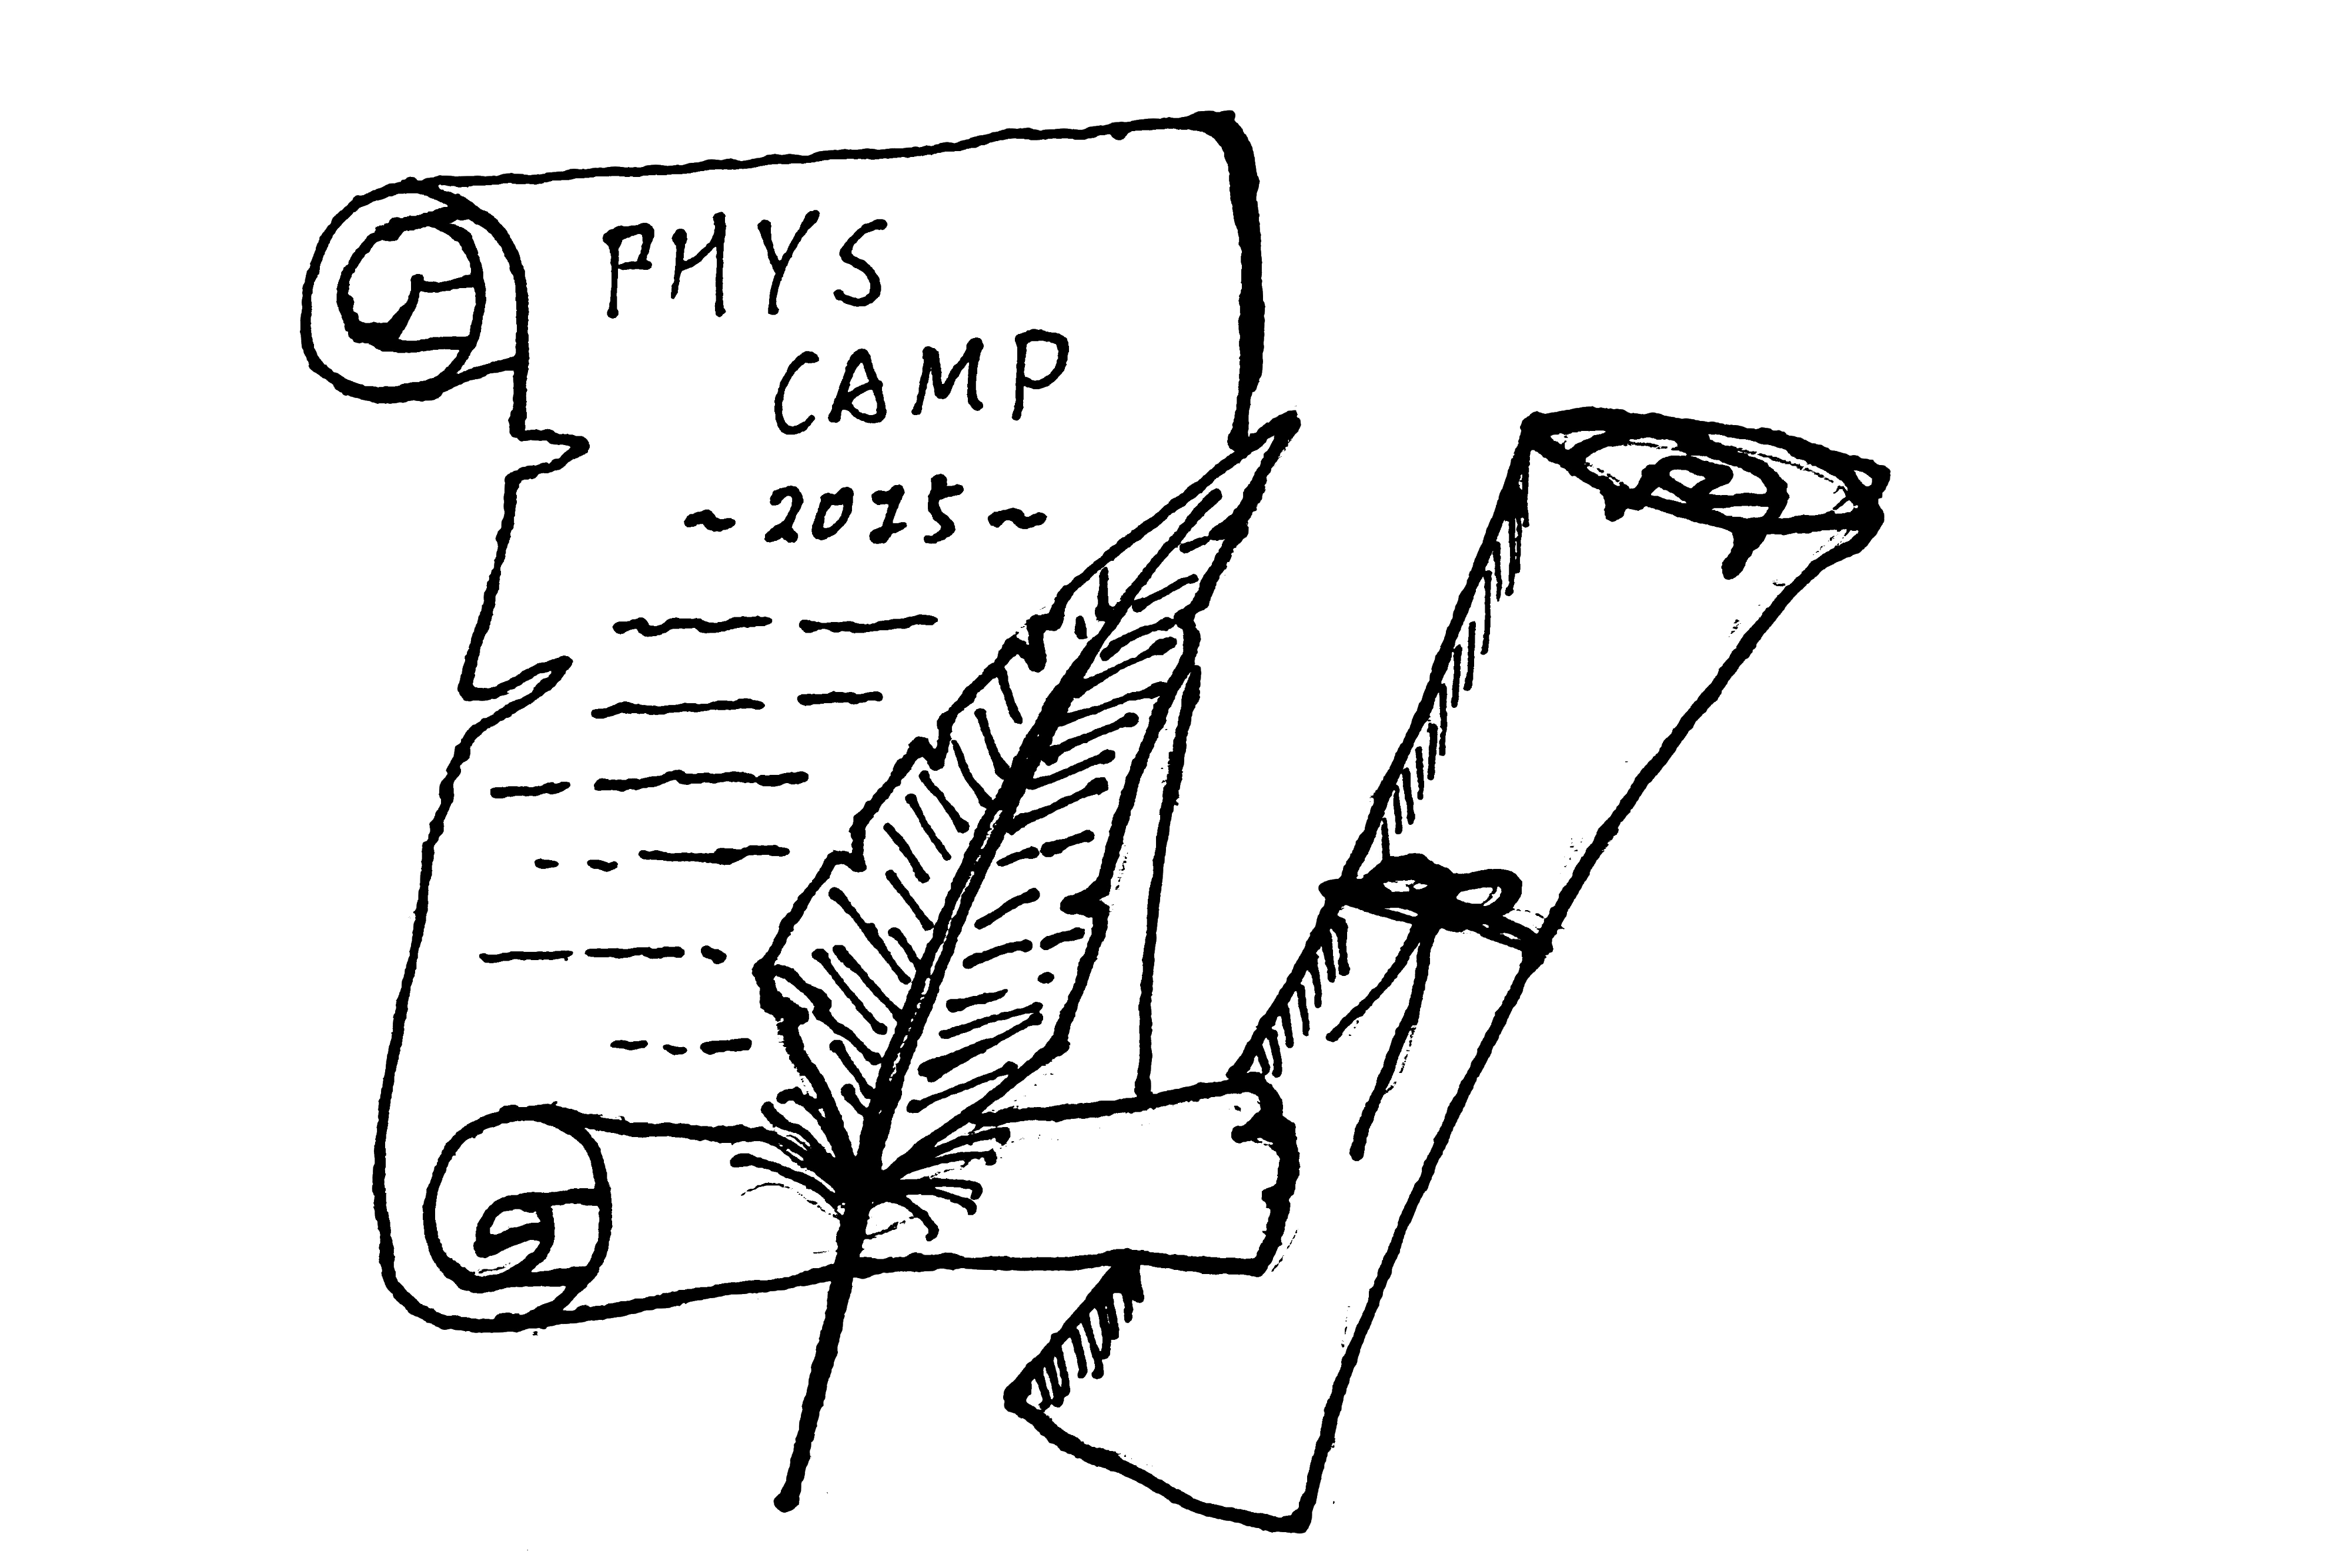 PHYS
CAMP
~2025~